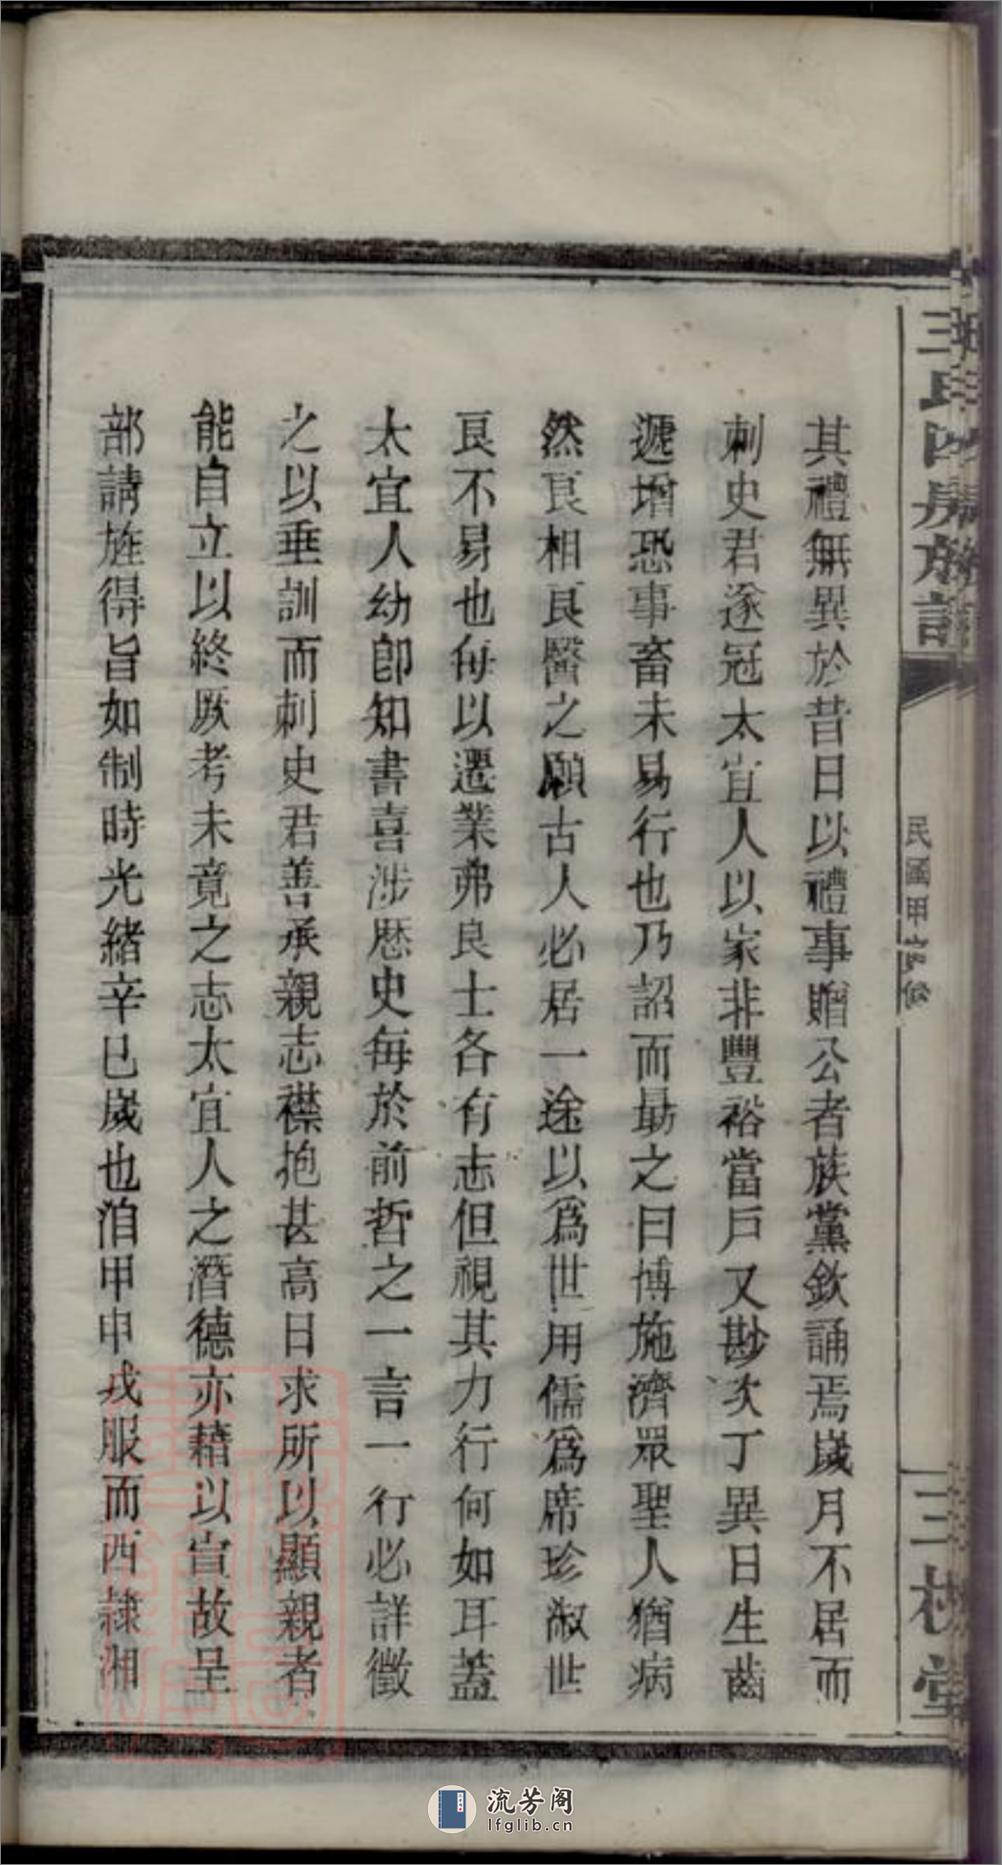 其禮無異於昔日以禮事贈公者族黨欽誦焉歲月不居而
刺史君遂冠太宜人以家非豐裕當戶又尠次丁異日生齒
遞增恐事畜未易行也乃詔而勗之曰博施濟眾聖人猶病
然良相良醫之願古人必居一途以爲世用儒爲席珍淑世
良不易也每以遷業弗良士各有志但視其力行何如耳蓋
太宜人幼卽知書喜涉歷史每於前哲之一言一行必詳徵
之以垂訓而刺史君善承親志襟抱甚高日求所以顯親者
能自立以終厥考未竟之志太宜人之潛德亦藉以宣故呈
部請旌得旨如制時光緒辛巳歲也洎甲申戎服而西隸湘
氏四房族譜
民國甲寅修
三槐堂
流芳阁
lfglib.cn